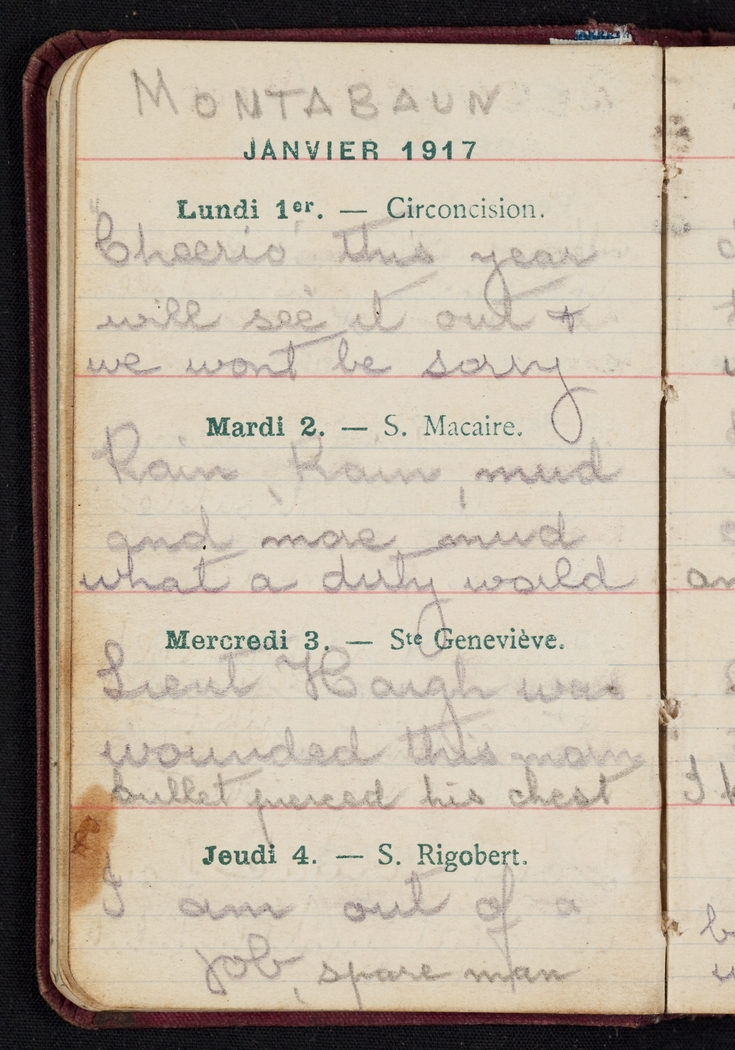 MONTABAUN
JANVIER 1917
Lundi 1er. — Circoncision.
"Cheerio" this year
will see it out &
we wont be sorry
Mardi 2. — S. Macaire.
Rain, Rain, mud
and mae mud
what a dirty world
Mercredi 3. — Ste Geneviève.
Lieut Haigh was
wounded this morn
bullet pierced his chest
Jeudi 4. — S. Rigobert.
I am out of a
job, spare man